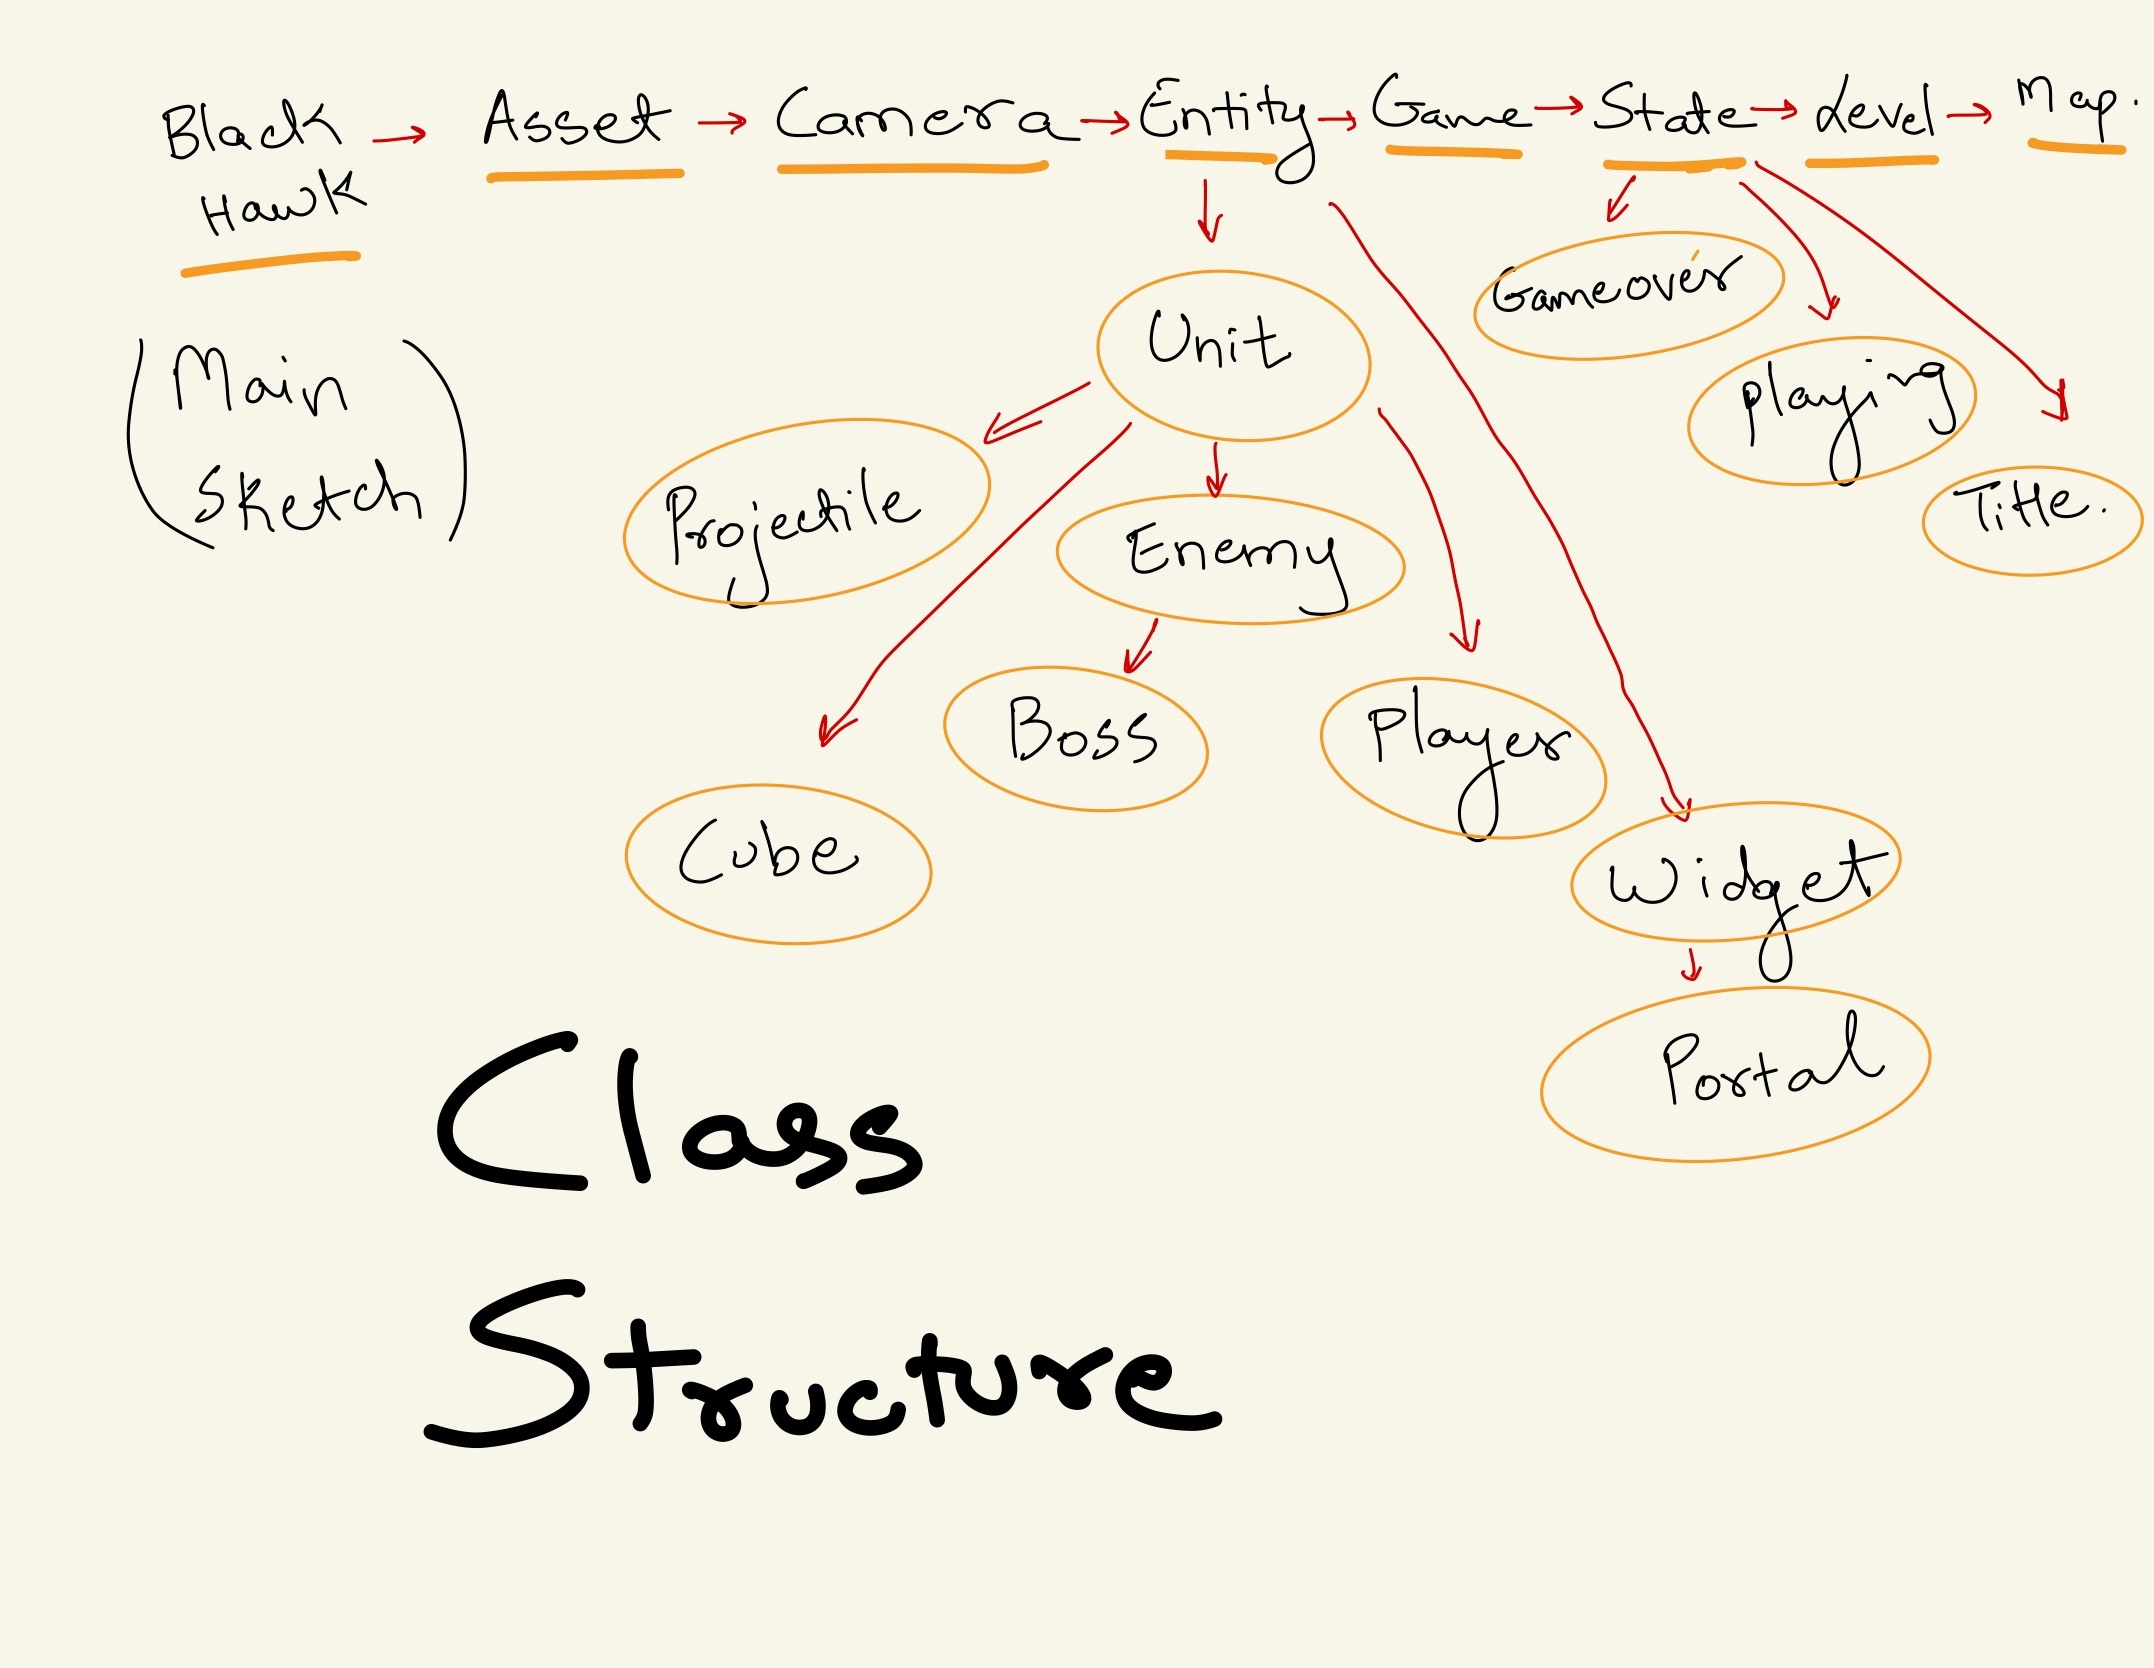 Black → Asset → Camera → Entity → Game → State → Level → Map.
Hawk
(Main
Sketch)
Gameover
Unit
Playing
Projectile
Title.
Enemy
Boss
Player
Cube
Widget
Portal
Class
Structure